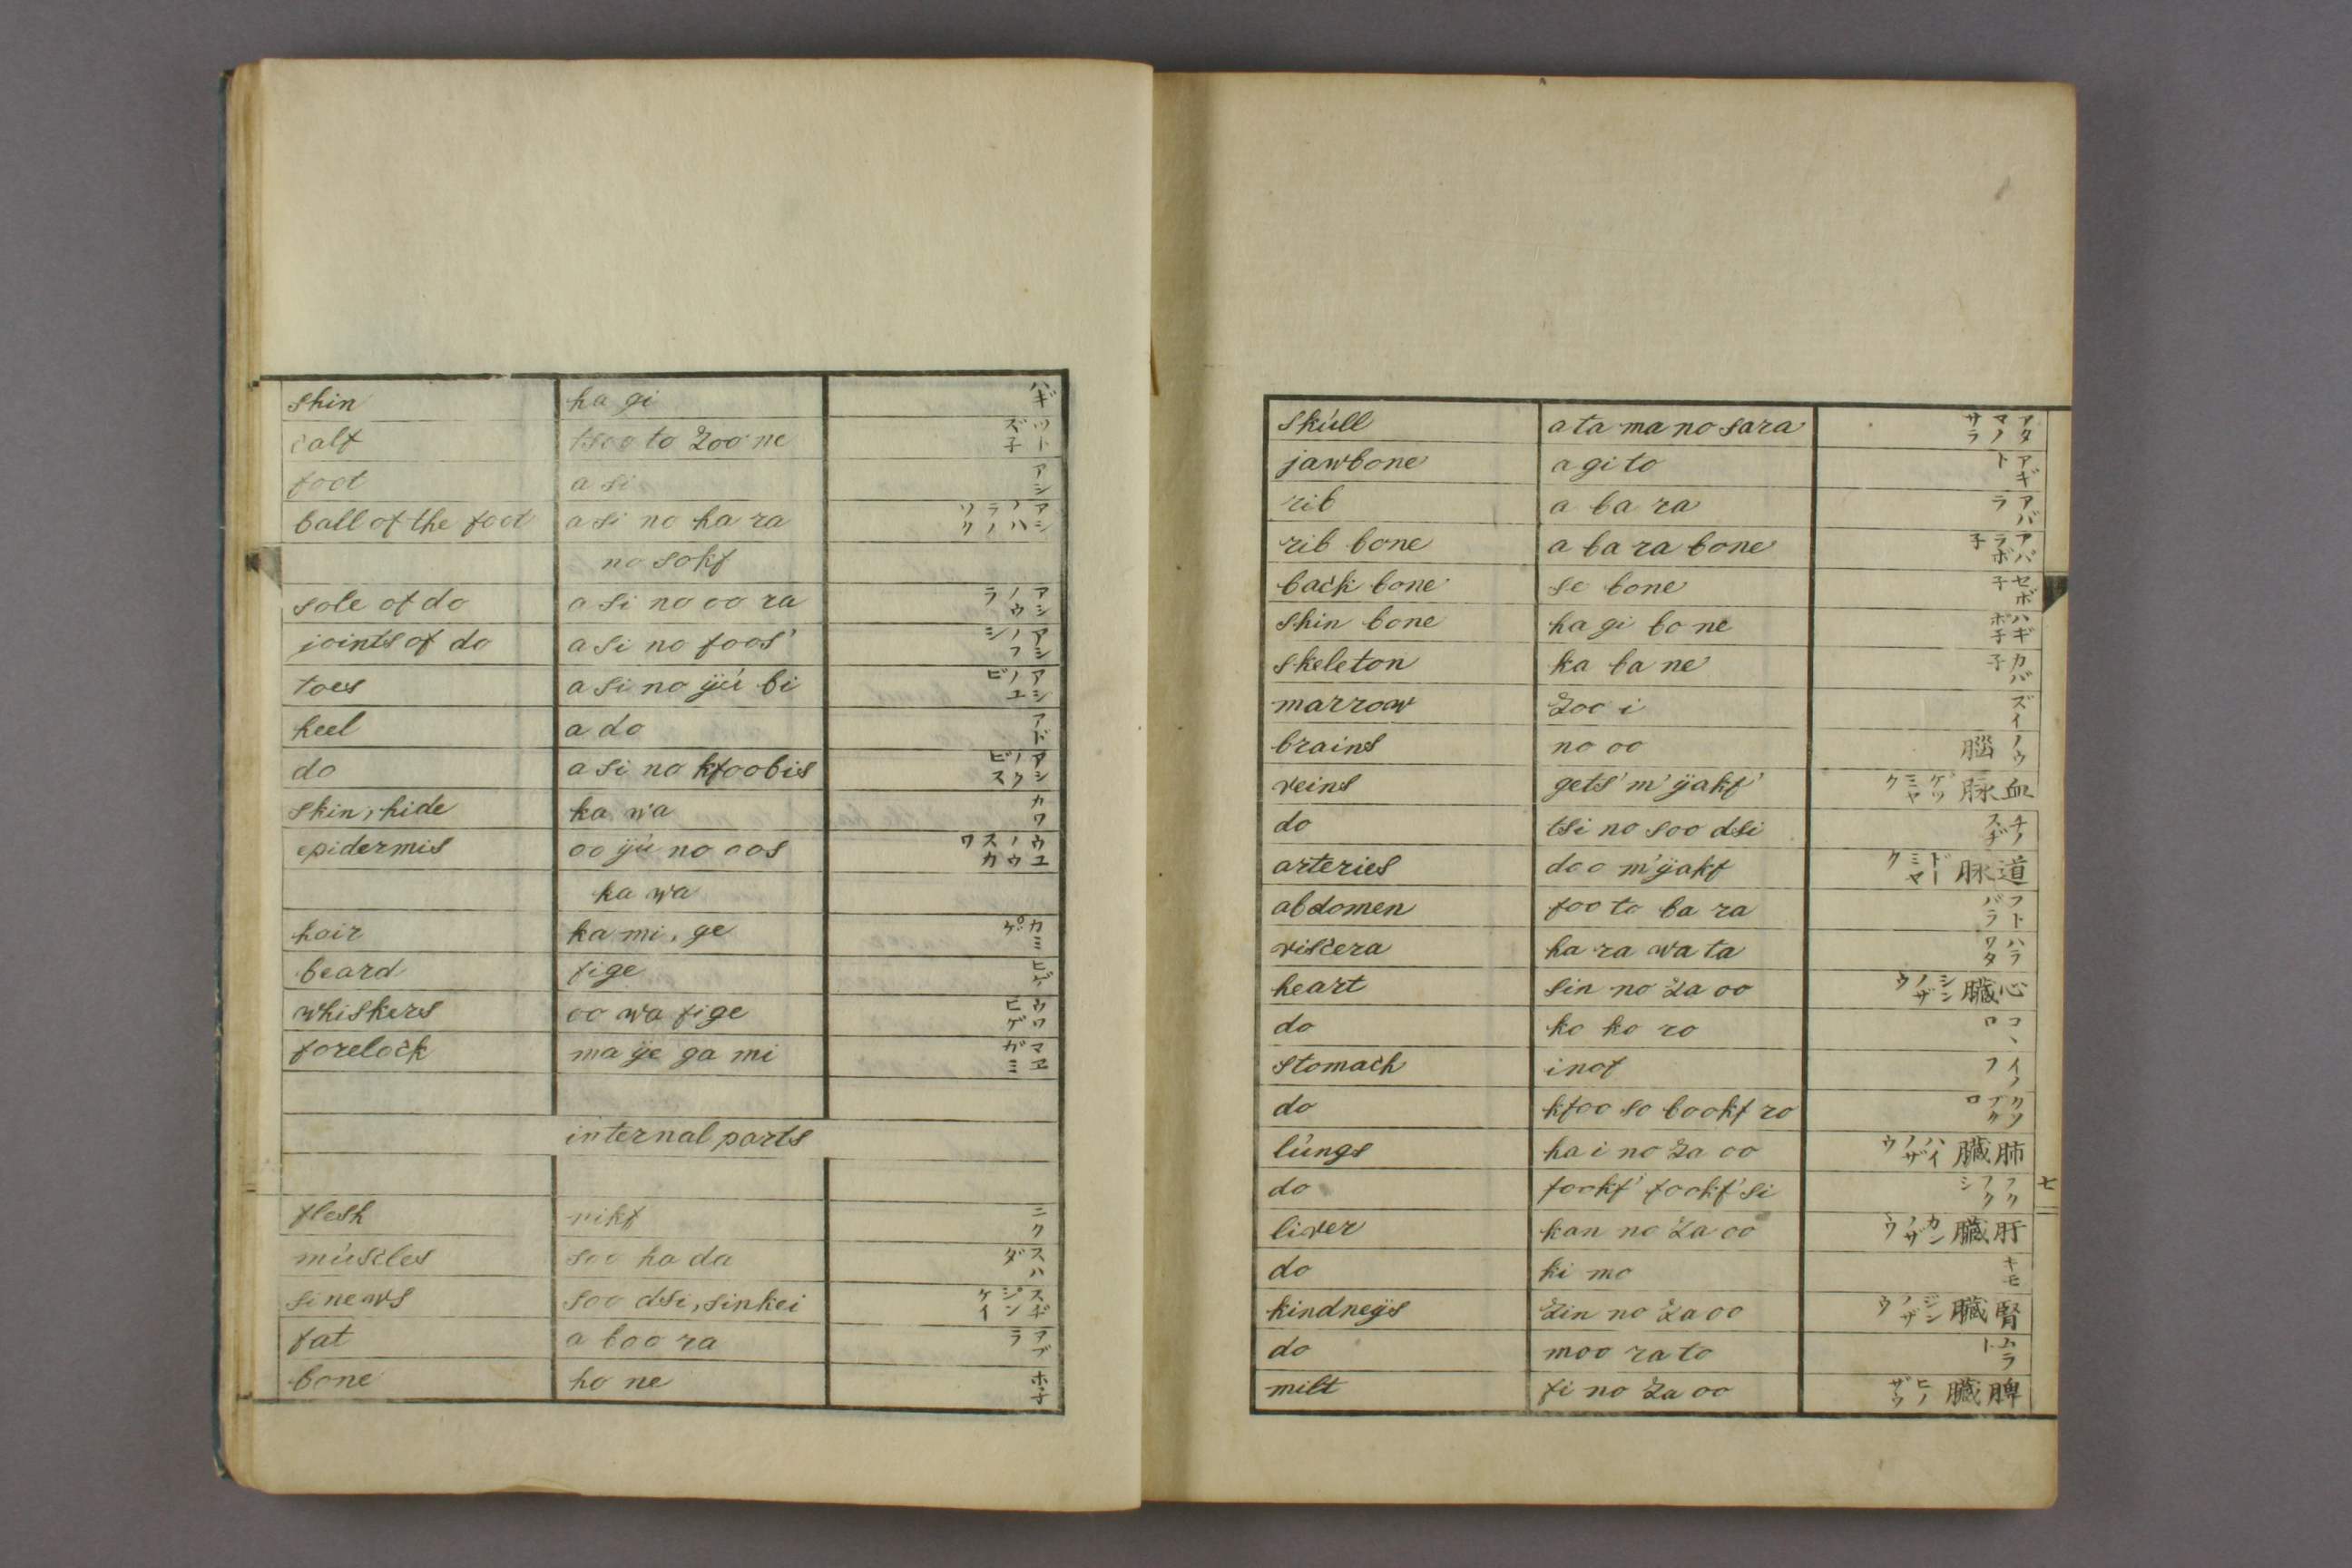 shin ha gi ハギ
calf tsoo to zoo ne ツトズ子
foot a si アシ
ball of the foot a si no ha ra アシノハラノソク
no sokf
sole of do a si no oo ra アシノウラ
joints of do a si no foos' アシノフシ
toes a si no ÿú bi アシノユビ
heel a do アド
do a si no kfoobis アシノクビス
skin, hide ka wa カワ
epidermis oo ÿú no oos ウユノウスカワ
ka wa
hair ka mi, ge カミゲ
beard fige ヒゲ
whiskers oo wa fige ウワヒゲ
forelock ma ÿe ga mi マヱガミ
internal parts
flesh nikf ニク
múscles soo ha da スハダ
sinews soo dsi, sinkei スヂシンケイ
fat a boo ra アブラ
bone ho ne ホ子
skúll a ta ma no sara アタマノサラ
jawbone a gi to アギト
rib a ba ra アバラ
rib bone a ba ra bone アバラボ子
back bone se bone セボ子
shin bone ha gi bo ne ハギボ子
skeleton ka ba ne カバ子
marrow zoo i ズイ
brains no oo 脳 ノウ
veins gets' m' ÿakf' 血脉 ゲツミヤク
do tsi no soo dsi チノスヂ
arteries doo m'ÿakf 道脉 ドーミヤク
abdomen foo to ba ra フトバラ
viscera ha ra wa ta ハラワタ
heart sin no za oo 心臓 シンノザウ
do ko ko ro コヽロ
stomach inof イノフ
do kfoo so bookf ro クソブクロ
lúngs ha i no za oo 肺臓 ハイノザウ
do fookf' fookf' si フクフクシ
七
liver kan no za oo 肝臓 カンノザウ
do ki mo キモ
kindneÿs zin no za oo 腎臓 ジンノザウ
do moo ra to ムラト
milt fi no za oo 脾臓 ヒノザウ